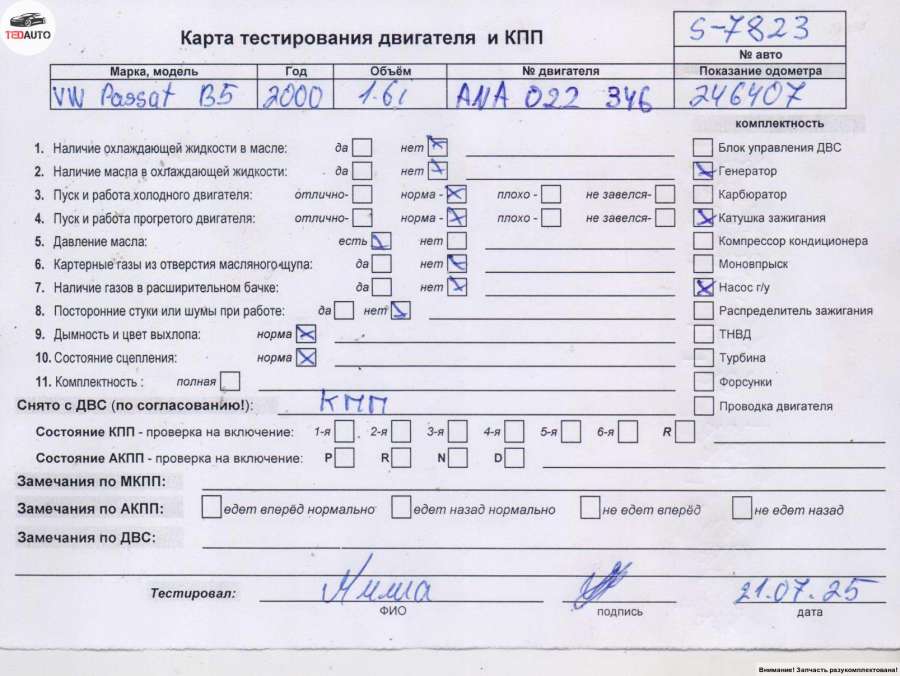 TEDAUTO
Карта тестирования двигателя и КПП
S-7823
№ авто
Марка, модель Год Объём № двигателя Показание одометра
VW Passat B5 2000 1.6i ANA 022 346 246407
комплектность
1. Наличие охлаждающей жидкости в масле: да нет Блок управления ДВС
2. Наличие масла в охлаждающей жидкости: да нет Генератор
3. Пуск и работа холодного двигателя: отлично- норма - плохо - не завелся- Карбюратор
4. Пуск и работа прогретого двигателя: отлично- норма - плохо - не завелся- Катушка зажигания
5. Давление масла: есть нет Компрессор кондиционера
6. Картерные газы из отверстия масляного щупа: да нет Моновпрыск
7. Наличие газов в расширительном бачке: да нет Насос г/у
8. Посторонние стуки или шумы при работе: да нет Распределитель зажигания
9. Дымность и цвет выхлопа: норма ТНВД
10. Состояние сцепления: норма Турбина
11. Комплектность : полная Форсунки
Снято с ДВС (по согласованию!): КПП Проводка двигателя
Состояние КПП - проверка на включение: 1-я 2-я 3-я 4-я 5-я 6-я R
Состояние АКПП - проверка на включение: P R N D
Замечания по МКПП:
Замечания по АКПП: едет вперёд нормально едет назад нормально не едет вперёд не едет назад
Замечания по ДВС:
Тестировал: 21.07.25
ФИО подпись дата
Внимание! Запчасть разукомплектована!